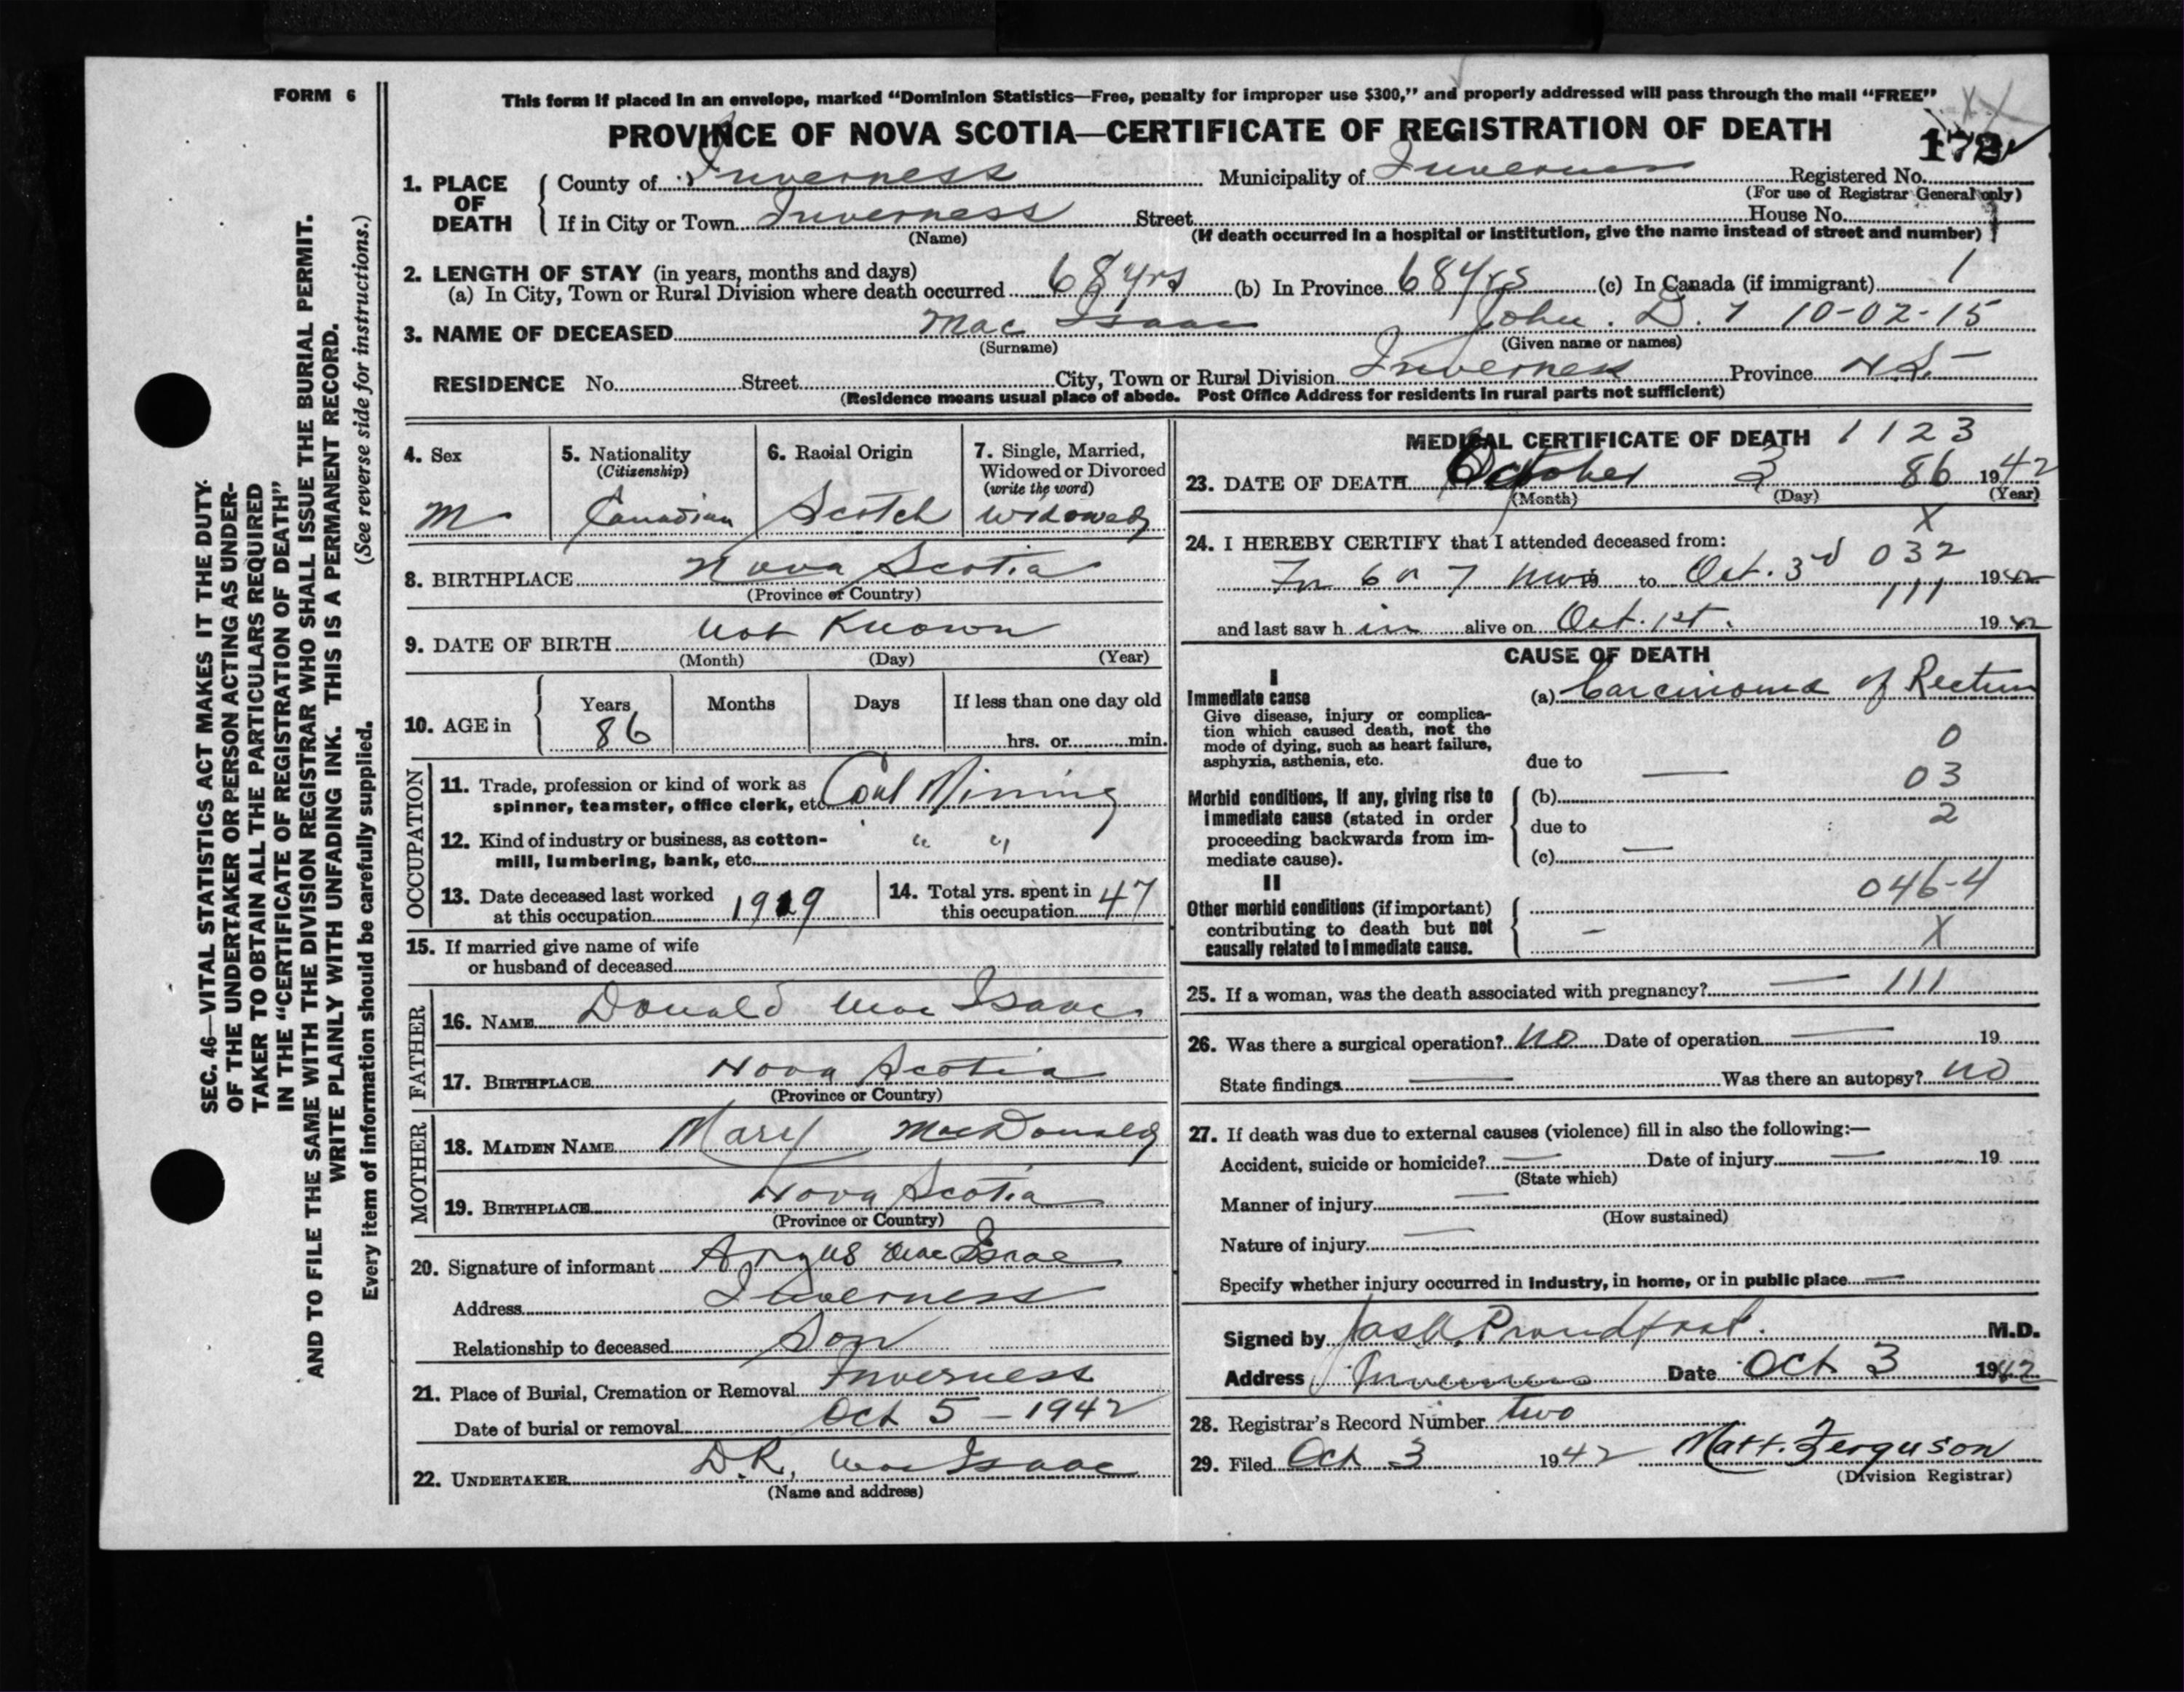 FORM 6
This form if placed in an envelope, marked “Dominion Statistics—Free, penalty for improper use $300,” and properly addressed will pass through the mail “FREE”
PROVINCE OF NOVA SCOTIA—CERTIFICATE OF REGISTRATION OF DEATH
1. PLACE OF DEATH
County of Inverness Municipality of Inverness Registered No.
(For use of Registrar General only)
If in City or Town Inverness Street House No.
(Name) (If death occurred in a hospital or institution, give the name instead of street and number)
2. LENGTH OF STAY (in years, months and days)
(a) In City, Town or Rural Division where death occurred 68 yrs (b) In Province 68 yrs (c) In Canada (if immigrant) /
3. NAME OF DECEASED Mac Isaac John . D. 7 10-02-15
(Surname) (Given name or names)
RESIDENCE No. Street City, Town or Rural Division Inverness Province N.S.
(Residence means usual place of abode. Post Office Address for residents in rural parts not sufficient)
4. Sex
M
5. Nationality
(Citizenship)
Canadian
6. Racial Origin
Scotch
7. Single, Married,
Widowed or Divorced
(write the word)
Widowed
8. BIRTHPLACE Nova Scotia
(Province or Country)
9. DATE OF BIRTH Not Known
(Month) (Day) (Year)
10. AGE in
Years Months Days If less than one day old
86 hrs. or min.
OCCUPATION
11. Trade, profession or kind of work as
spinner, teamster, office clerk, etc. Coal Mining
12. Kind of industry or business, as cotton-
mill, lumbering, bank, etc. " "
13. Date deceased last worked
at this occupation 1919
14. Total yrs. spent in
this occupation 47
15. If married give name of wife
or husband of deceased
FATHER
16. NAME Donald Mac Isaac
17. BIRTHPLACE Nova Scotia
(Province or Country)
MOTHER
18. MAIDEN NAME Mary MacDonald
19. BIRTHPLACE Nova Scotia
(Province or Country)
20. Signature of informant Angus Mac Isaac
Address Inverness
Relationship to deceased Son
21. Place of Burial, Cremation or Removal Inverness
Date of burial or removal Oct 5 - 1942
22. UNDERTAKER D.R. Mac Isaac
(Name and address)
MEDICAL CERTIFICATE OF DEATH 1123
23. DATE OF DEATH October 3 86 1942
(Month) (Day) (Year)
X
24. I HEREBY CERTIFY that I attended deceased from:
032
For 6 or 7 mos 19 to Oct. 3d 1942
111
and last saw h im alive on Oct. 1st. 1942
CAUSE OF DEATH
I
Immediate cause
Give disease, injury or complica-
tion which caused death, not the
mode of dying, such as heart failure,
asphyxia, asthenia, etc.
(a) Carcinoma of Rectum
0
due to —
03
Morbid conditions, if any, giving rise to
immediate cause (stated in order
proceeding backwards from im-
mediate cause).
(b)
2
due to
(c) —
II
046-4
Other morbid conditions (if important)
contributing to death but not
causally related to immediate cause.
- X
25. If a woman, was the death associated with pregnancy? — 111
26. Was there a surgical operation? No Date of operation — 19
State findings — Was there an autopsy? No
27. If death was due to external causes (violence) fill in also the following:—
Accident, suicide or homicide? — Date of injury — 19
(State which)
Manner of injury —
(How sustained)
Nature of injury —
Specify whether injury occurred in industry, in home, or in public place —
Signed by Proudfoot. M.D.
Address Inverness Date Oct 3 1942
28. Registrar's Record Number two
29. Filed Oct 3 1942 Matt. Ferguson
(Division Registrar)
SEC. 46—VITAL STATISTICS ACT MAKES IT THE DUTY
OF THE UNDERTAKER OR PERSON ACTING AS UNDER-
TAKER TO OBTAIN ALL THE PARTICULARS REQUIRED
IN THE “CERTIFICATE OF REGISTRATION OF DEATH”
AND TO FILE THE SAME WITH THE DIVISION REGISTRAR WHO SHALL ISSUE THE BURIAL PERMIT.
WRITE PLAINLY WITH UNFADING INK. THIS IS A PERMANENT RECORD.
Every item of information should be carefully supplied. (See reverse side for instructions.)